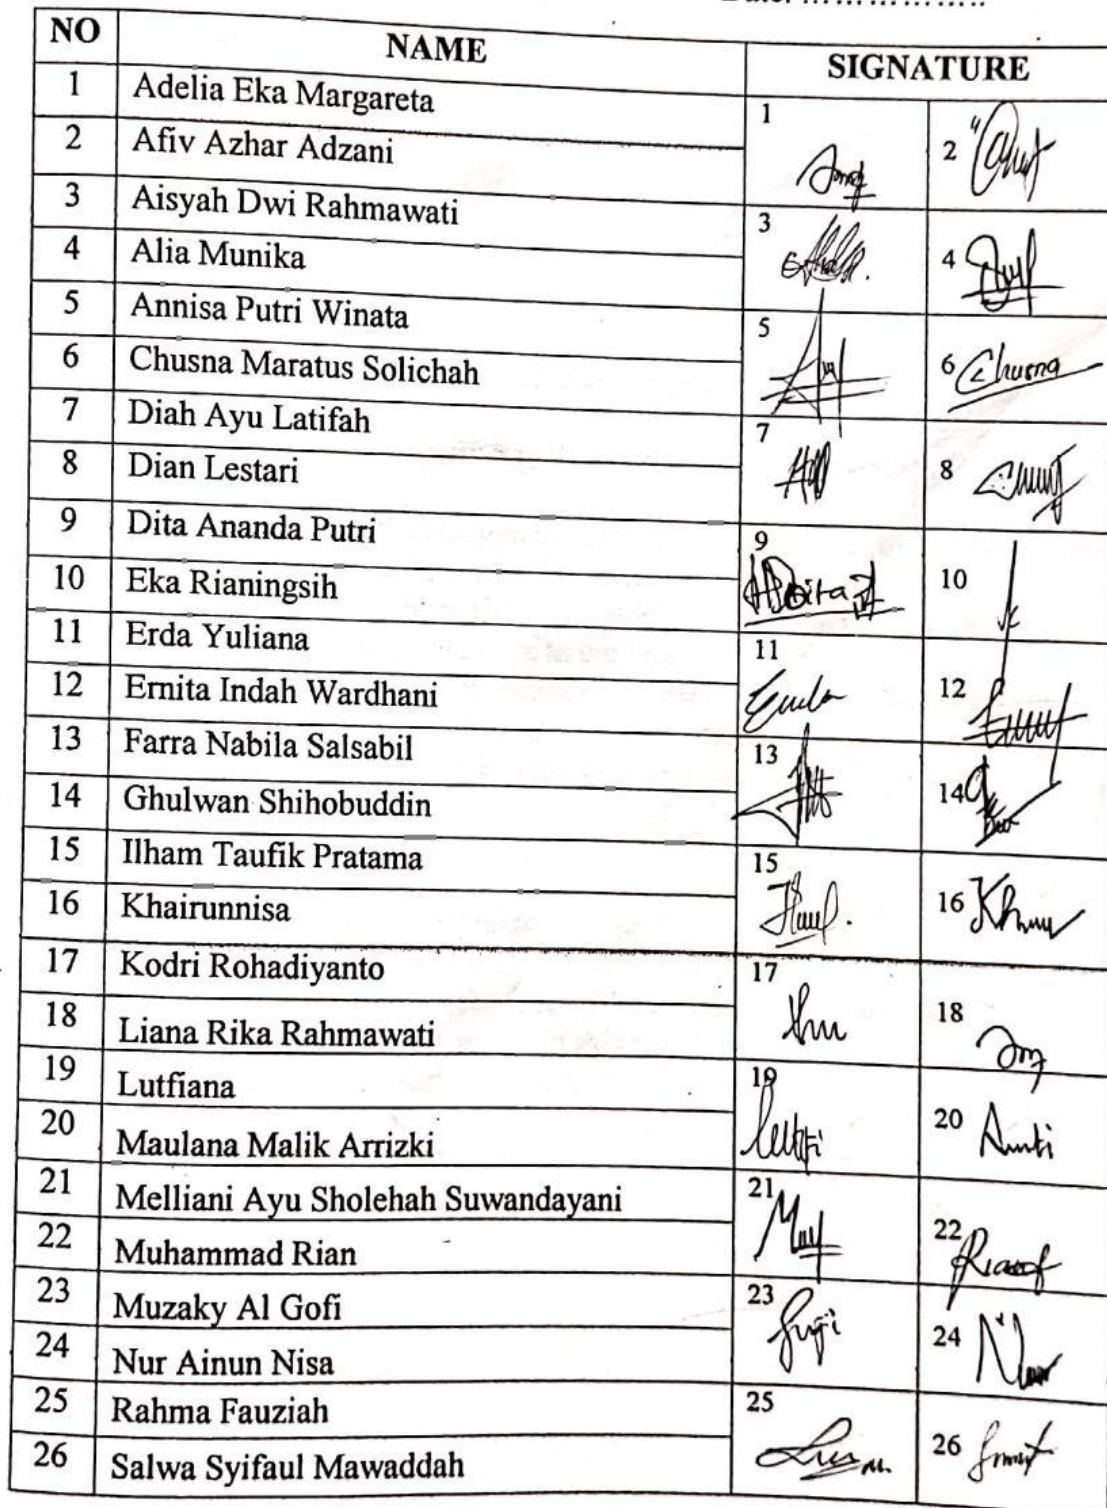 NO NAME SIGNATURE
1 Adelia Eka Margareta 1
2 Afiv Azhar Adzani 2
3 Aisyah Dwi Rahmawati 3
4 Alia Munika 4
5 Annisa Putri Winata 5
6 Chusna Maratus Solichah 6 Chusna
7 Diah Ayu Latifah 7
8 Dian Lestari 8
9 Dita Ananda Putri 9 Dita
10 Eka Rianingsih 10
11 Erda Yuliana 11
12 Ernita Indah Wardhani 12
13 Farra Nabila Salsabil 13
14 Ghulwan Shihobuddin 14
15 Ilham Taufik Pratama 15
16 Khairunnisa 16
17 Kodri Rohadiyanto 17
18 Liana Rika Rahmawati 18
19 Lutfiana 19
20 Maulana Malik Arrizki 20
21 Melliani Ayu Sholehah Suwandayani 21
22 Muhammad Rian 22
23 Muzaky Al Gofi 23
24 Nur Ainun Nisa 24
25 Rahma Fauziah 25
26 Salwa Syifaul Mawaddah 26